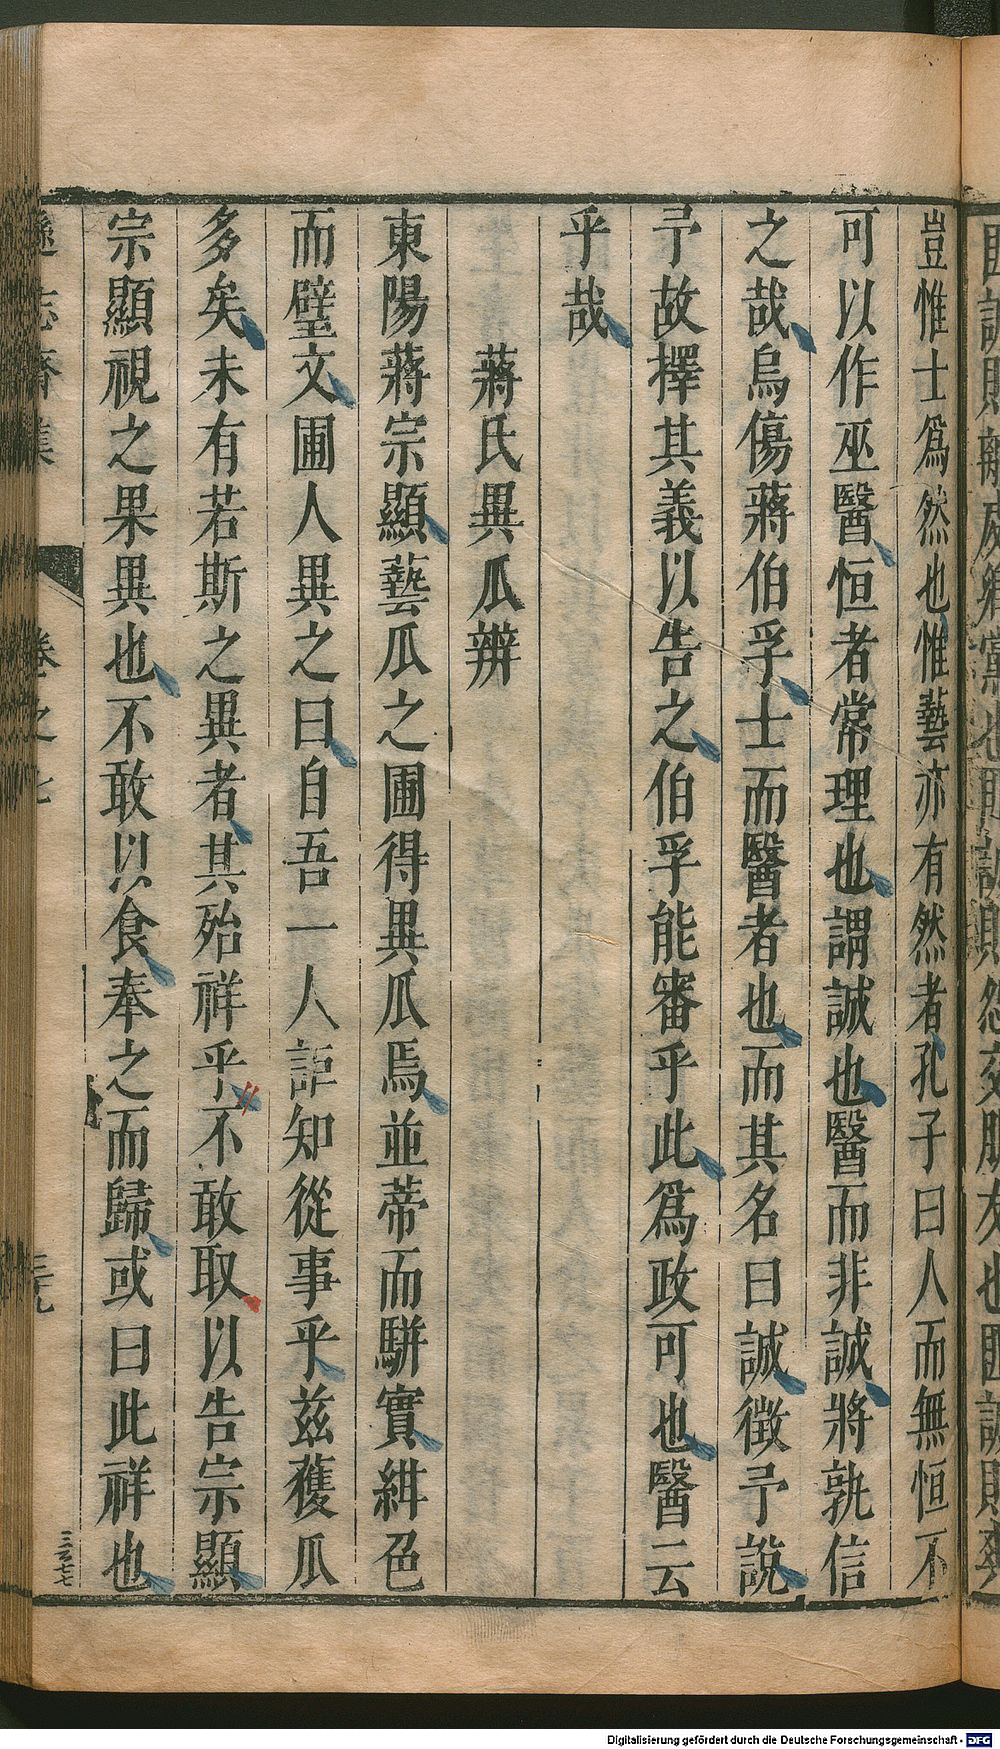 豈惟士爲然也惟藝亦有然者孔子曰人而無恒不
可以作巫醫恒者常理也謂誠也醫而非誠將孰信
之哉烏傷蔣伯孚士而醫者也而其名曰誠徵予說
予故擇其義以告之伯孚能審乎此爲政可也醫云
乎哉
蔣氏異瓜辨
東陽蔣宗顯藝瓜之圃得異瓜焉並蒂而駢實緋色
而璧文圃人異之曰自吾一人詎知從事乎茲蔓瓜
多矣未有若斯之異者其殆祥乎不敢取以告宗顯
宗顯視之果異也不敢以食奉之而歸或曰此祥也
遜志齋集
卷之七
三十九
Digitalisierung gefördert durch die Deutsche Forschungsgemeinschaft - DFG